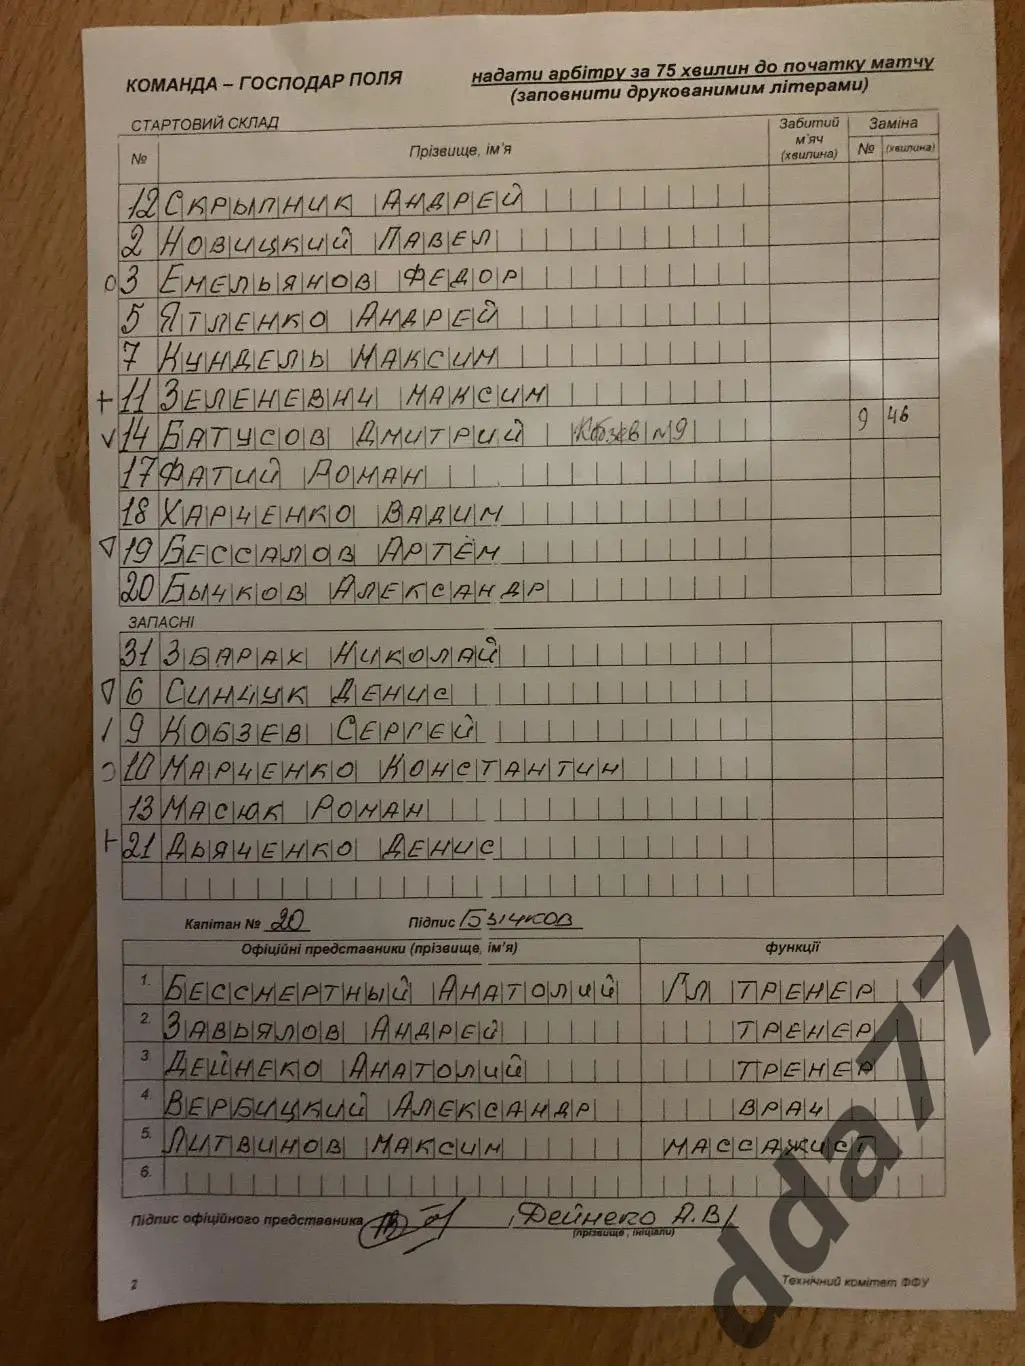 КОМАНДА – ГОСПОДАР ПОЛЯ
надати арбітру за 75 хвилин до початку матчу
(заповнити друкованимим літерами)
СТАРТОВИЙ СКЛАД
№ Прізвище, ім'я Забитий м'яч (хвилина) Заміна № (хвилина)
12 СКРЫПНИК АНДРЕЙ
2 НОВИЦКИЙ ПАВЕЛ
3 ЕМЕЛЬЯНОВ ФЕДОР
5 ЯТЛЕНКО АНДРЕЙ
7 КУНДЕЛЬ МАКСИМ
+ 11 ЗЕЛЕНЕВИЧ МАКСИМ
V 14 БАТУСОВ ДМИТРИЙ Кобзев №9 9 46
17 ФАТИЙ РОМАН
18 ХАРЧЕНКО ВАДИМ
▽ 19 БЕССАЛОВ АРТЁМ
20 БЫЧКОВ АЛЕКСАНДР
ЗАПАСНІ
31 ЗБАРАХ НИКОЛАЙ
▽ 6 СИНЧУК ДЕНИС
/ 9 КОБЗЕВ СЕРГЕЙ
10 МАРЧЕНКО КОНСТАНТИН
13 МАСЮК РОМАН
21 ДЬЯЧЕНКО ДЕНИС
Капітан № 20 Підпис Бычков
Офіційні представники (прізвище, ім'я) функції
1. БЕССМЕРТНЫЙ АНАТОЛИЙ ГЛ ТРЕНЕР
2. ЗАВЬЯЛОВ АНДРЕЙ ТРЕНЕР
3 ДЕЙНЕКО АНАТОЛИЙ ТРЕНЕР
4. ВЕРБИЦКИЙ АЛЕКСАНДР ВРАЧ
5. ЛИТВИНОВ МАКСИМ МАССАЖИСТ
6.
Підпис офіційного представника Дейнеко А.В/
(прізвище, ініціали)
2 Технічний комітет ФФУ
dda77